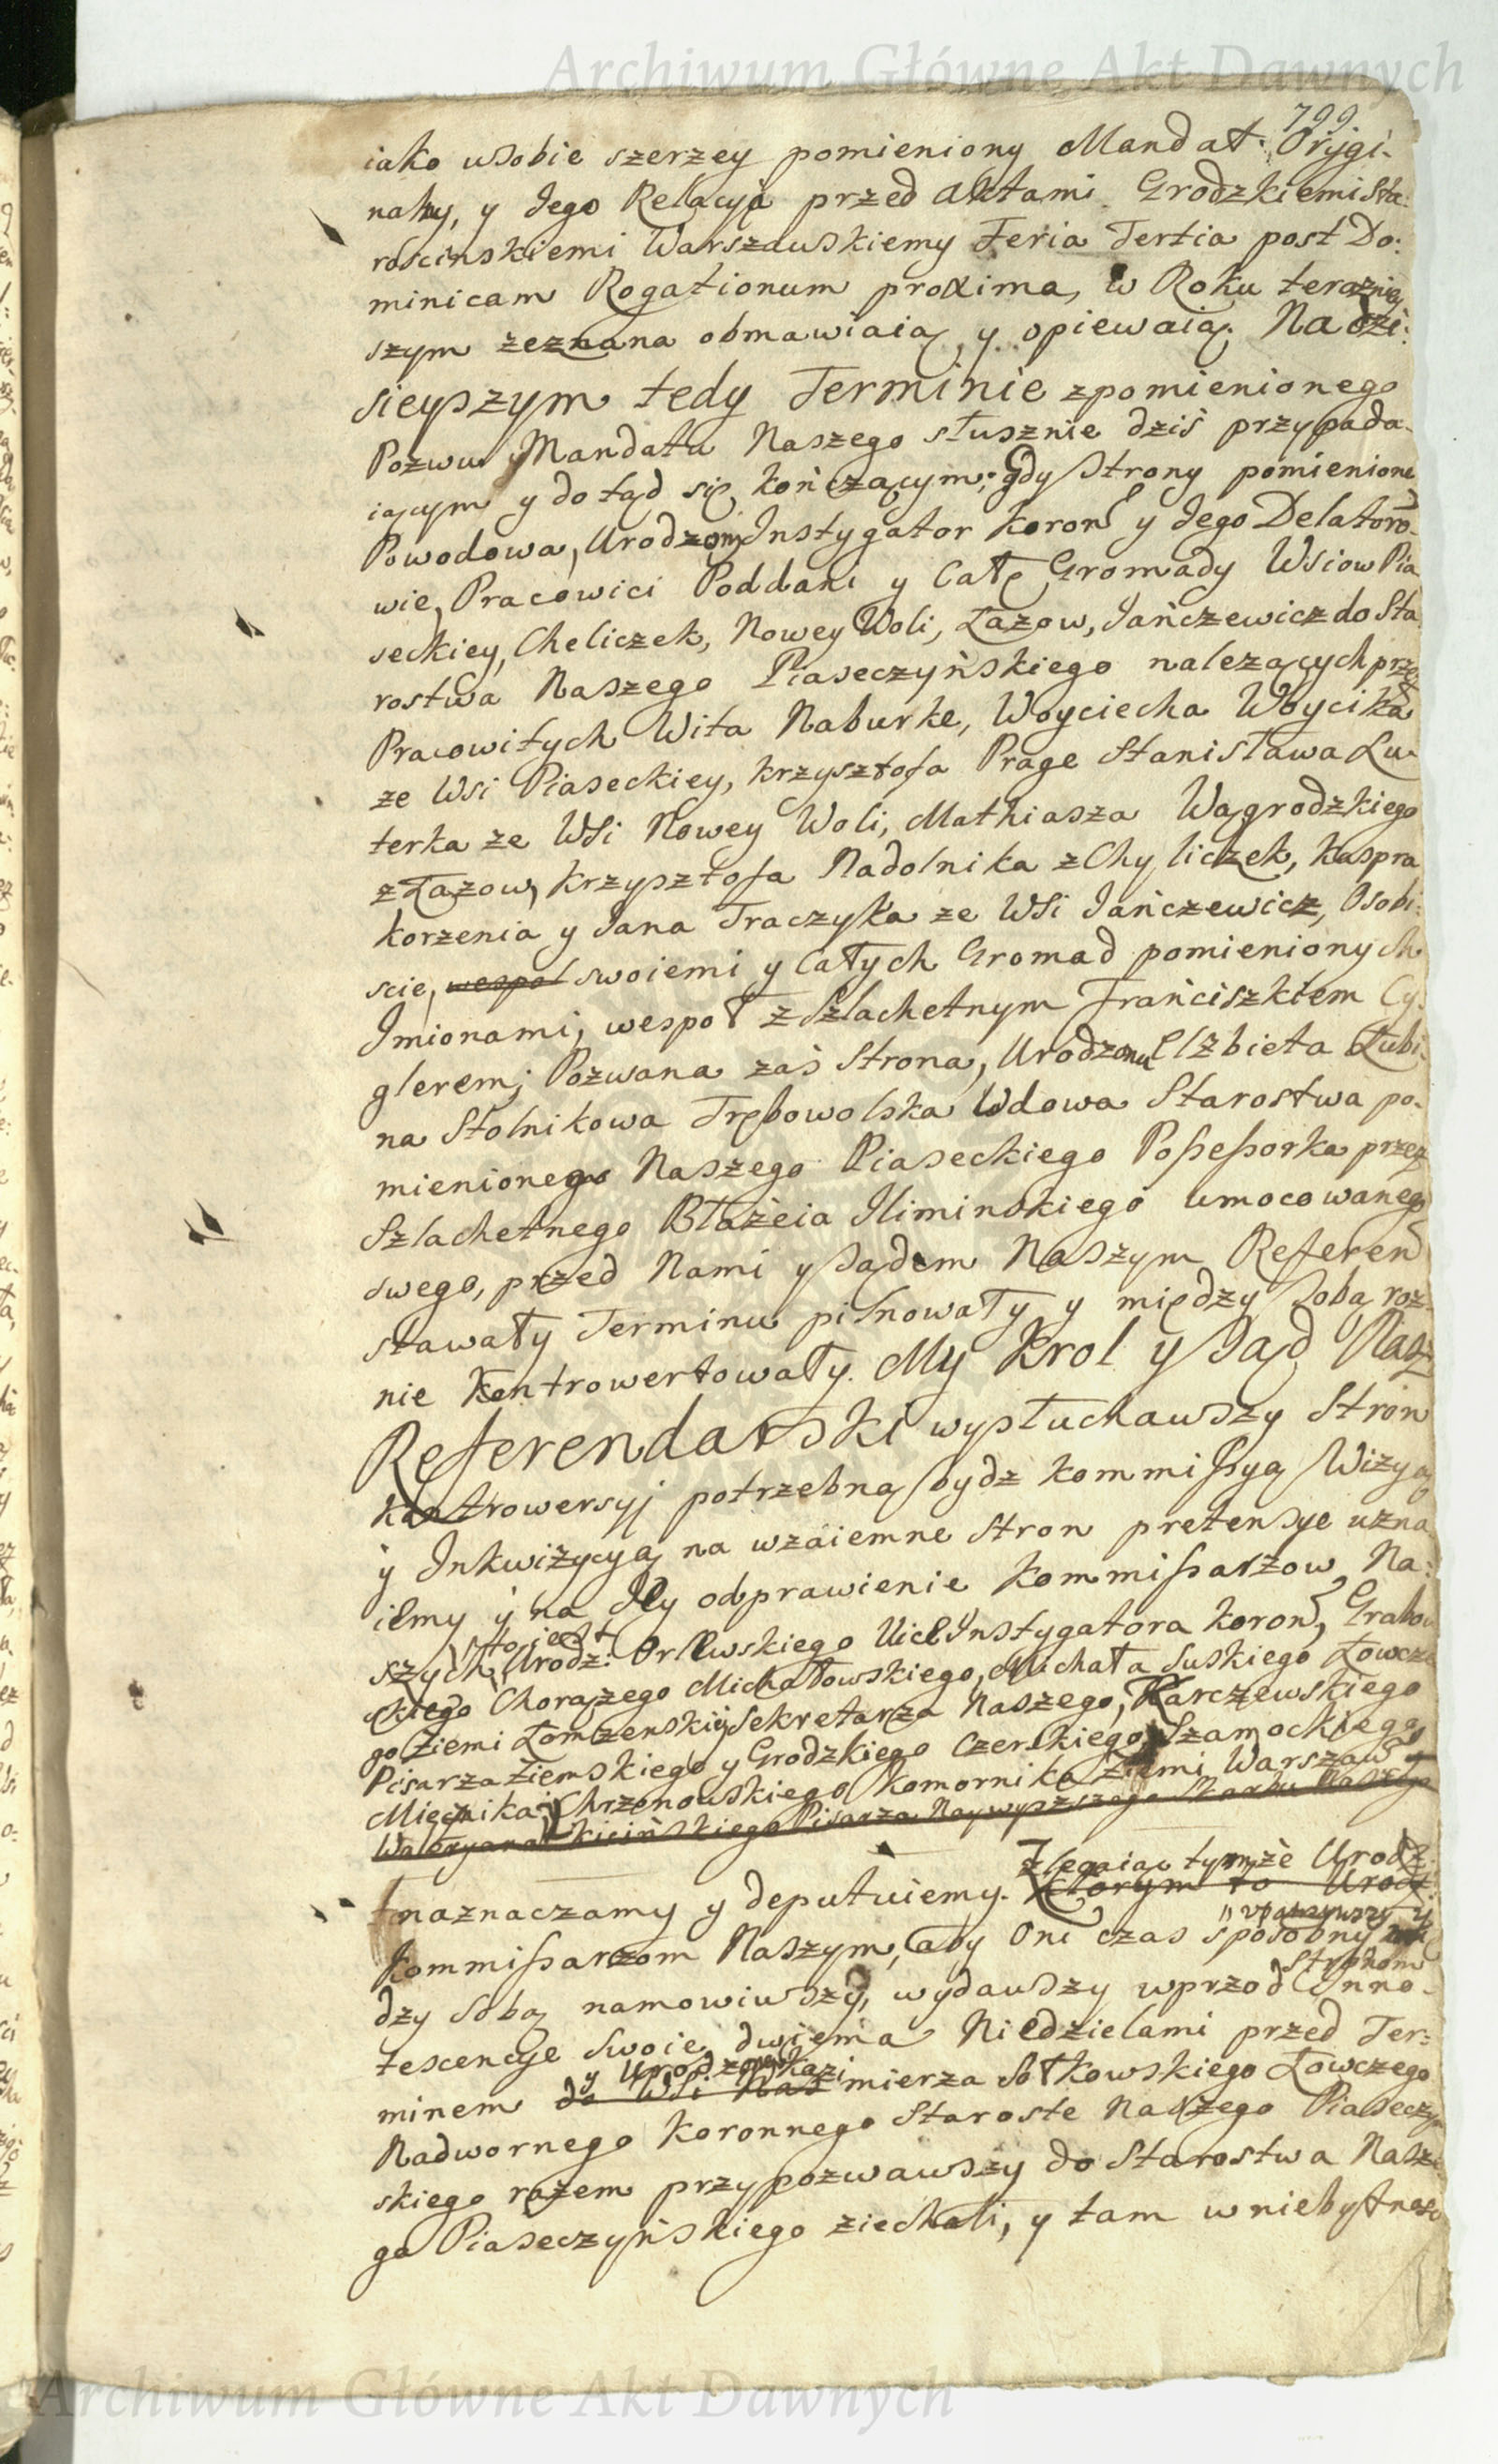 Archiwum Główne Akt Dawnych
799
iako wsobie szerzey pomieniony Mandat Orygi-
nalny, y Jego Relacya przed Aktami Grodzkiemi Sta-
rościnskiemi Warszawskiemy Feria Tertia post Do-
minicam Rogationum proxima, w Roku teraźniey
szym zeznana obmawiaią, y opiewaią. Na dzi-
sieyszym tedy Terminie zpomienionego
Pozwu y Mandatu Naszego słusznie dziś przypada-
iącym y do tąd się kończącym; gdy Strony pomienione
Powodowa, Urodzony Instygator koron y Jego Delatoro-
wie, Pracowici Poddani y Całe Gromady Wsiow Pia
seckiey, Cheliczek, Nowey Woli, Łazow, Jańczewicz do Sta
rostwa Naszego Piaseczyńskiego należących prze
Pracowitych Wita Naburke, Woyciecha Woycika
ze Wsi Piaseckiey, krzysztofa Prage Stanisława Lu-
terka ze Wsi Nowey Woli, Mathiasza Wągrodzkiego
z Łazow, krzysztofa Nadolnika z Chyliczek, kaspra
korzenia y Jana Traczyka ze Wsi Jańczewicz, Osobi-
scie, wespoł swoiemi y Całych Gromad pomienionych
Imionami, wespoł z Szlachetnym Franciszkiem Cy-
glerem; Pozwana zaś Strona, Urodzona Elżbieta Łubi-
na Stolnikowa Trębowolska Wdowa Starostwa po-
mienionego Naszego Piaseckiego Possessorka przez
Szlachetnego Błażeia Iliminskiego umocowanego
swego, przed Nami y Sądem Naszym Referen
stawały Terminu pilnowały y między sobą roz-
nie kontrowertowały. My krol y Sąd Nasz
Referendarski wysłuchawszy Stron
kontrowersyi potrzebną bydz kommissyą Wizyą
y Inkwizycyą na wzaiemne Stron pretensye uzna
iemy y na Jey odprawienie kommissarzow Na-
to iest
szych Urodz: Orlewskiego Vice Instygatora koron, Grabow
skiego Chorązego Michałowskiego, Michała Suskiego Łowcze
go Ziemi Łomżenskiey Sekretarza Naszego, Karczewskiego
Pisarza Ziemskiego y Grodzkiego Czerskiego, Szamockiego
Miecznika, Chrzanowskiego komornika Ziemi Warszaw
Waleryana kicińskiego Pisarza Naywyższego Skarbu Naszego
Zlecaiąc tymże Urodz:
naznaczamy y deputuiemy. ktorym to Urodz:
upatrzywszy y
kommissarzom Naszym, aby Oni czas sposobny mię
Stronom
dzy sobą namowiwszy, wydawszy wprzod Inno-
tescencye swoie, dwiema Niedzielami przed Ter-
y Urodzonego kazi
minem do Wsi Nasmierza Sołkowskiego Łowczego
Nadwornego koronnego Staroste Naszego Piaseczyn
skiego razem przypozwawszy do Starostwa Nasze
go Piaseczyńskiego ziechali, y tam w niebytnosc
Archiwum Główne Akt Dawnych